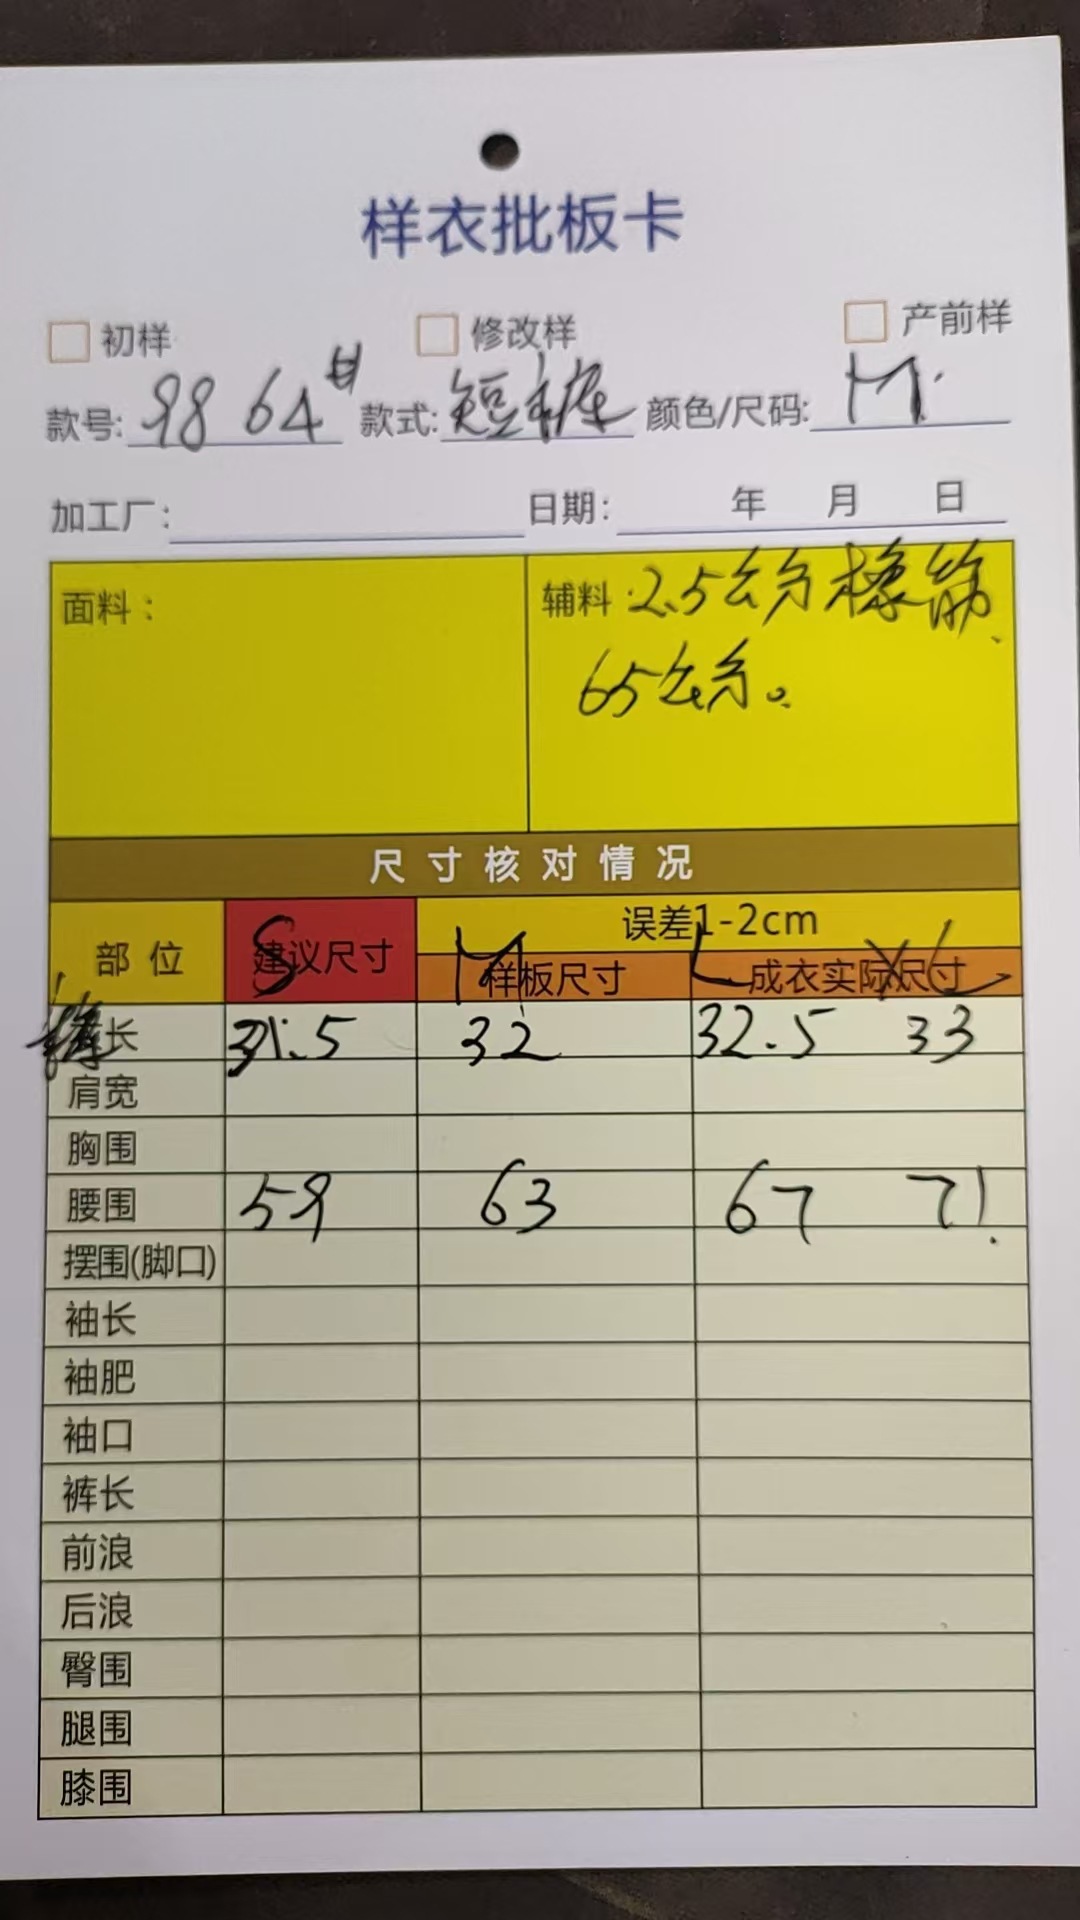 样衣批板卡
初样 修改样 产前样
款号: 9864# 款式: 短裤 颜色/尺码: M.
加工厂: 日期: 年 月 日
面料: 辅料: 2.5公分橡筋
65公分。
尺寸核对情况
部位 建议尺寸 S 误差1-2cm
样板尺寸 M 成衣实际尺寸 L XL
裤长 31.5 32 32.5 33
肩宽
胸围
腰围 59 63 67 71.
摆围(脚口)
袖长
袖肥
袖口
裤长
前浪
后浪
臀围
腿围
膝围